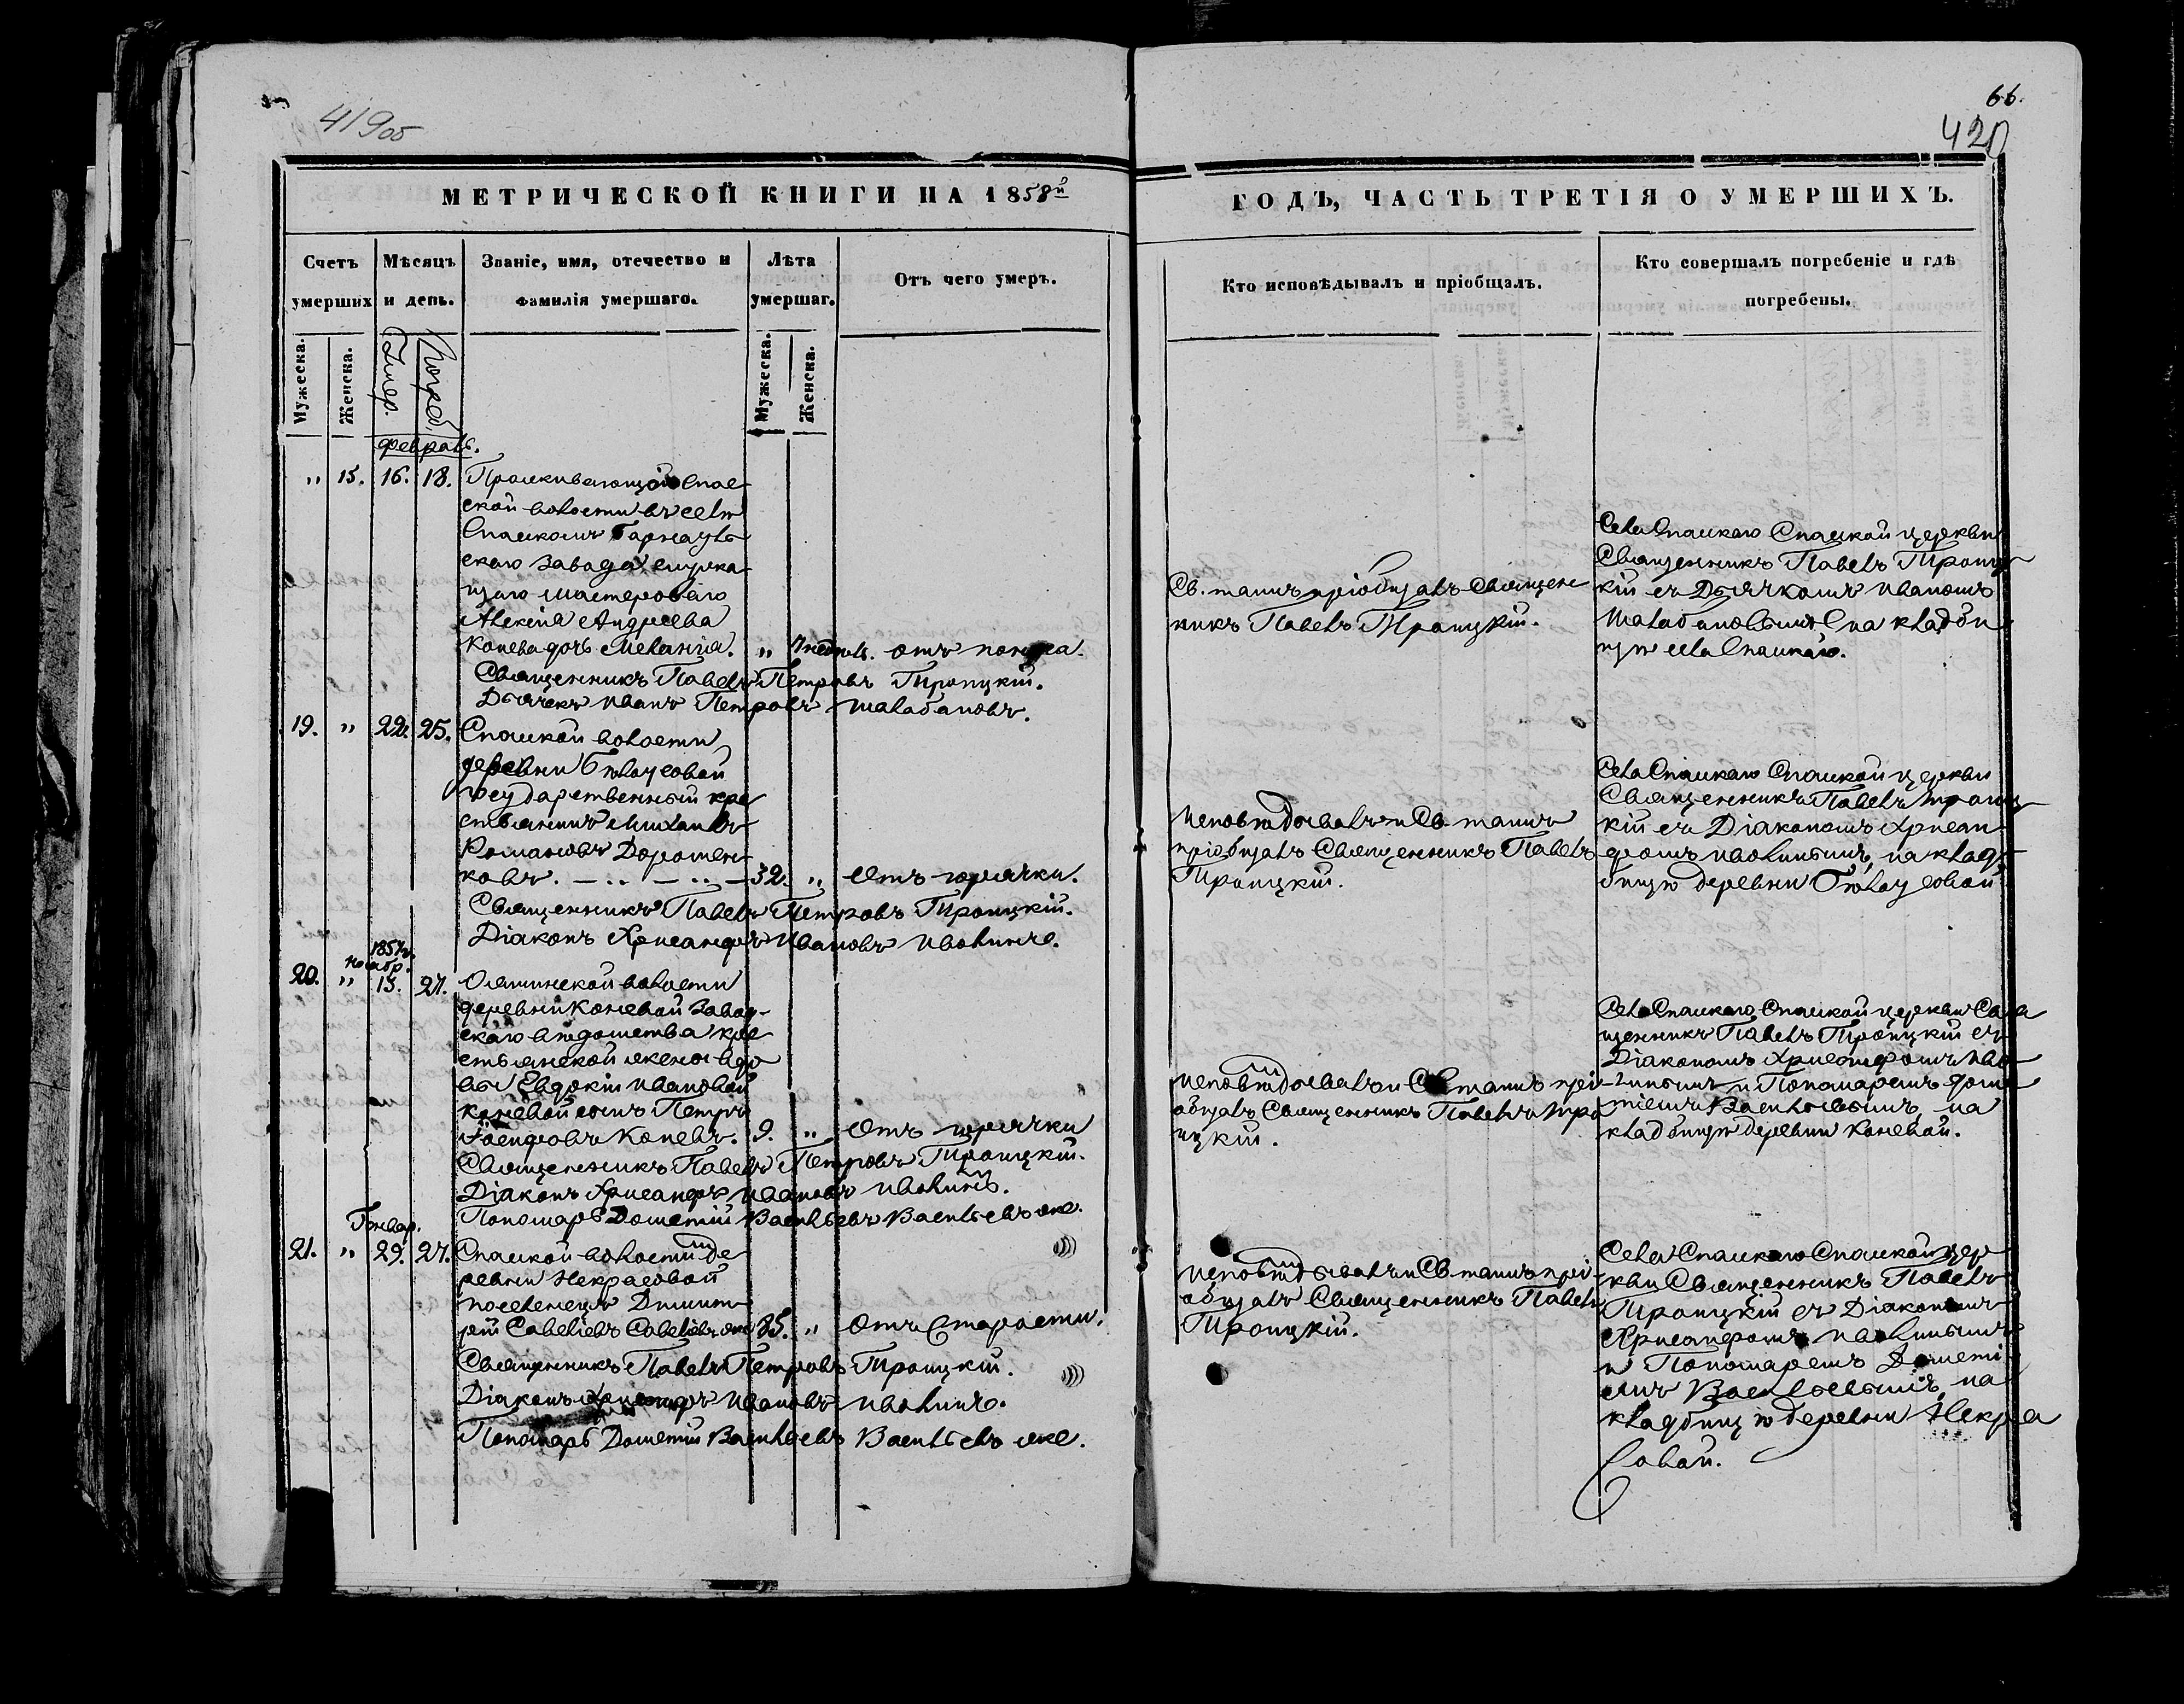 419об
66.
420
МЕТРИЧЕСКОЙ КНИГИ НА 1858й
ГОДЪ, ЧАСТЬ ТРЕТІЯ О УМЕРШИХЪ.
Счетъ умерших
Мѣсяцъ и день.
Званіе, имя, отечество и фамилія умершаго.
Лѣта умершаг.
Отъ чего умеръ.
Кто исповѣдывалъ и пріобщалъ.
Кто совершалъ погребеніе и гдѣ погребены.
Мужеска. Женска. Умер. Погреб. Мужеска. Женска.
Февраль.
" 15. 16. 18. Проживающей Спас
ской волости въ селѣ
Спаскомъ Барнауль
скаго завода служа
щаго мастероваго
Алексѣя Андреева
Конева дочь Меланія. " 7 недѣль. отъ поноса.
Священникъ Павелъ Петровъ Троицкій.
Дьячекъ Иванъ Петровъ Шалабановъ.
Св. таинъ пріобщалъ Священ
никъ Павелъ Троицкій.
Села Спаскаго Спаской церкви
Священникъ Павелъ Троиц
кій съ Дьячкомъ Иваномъ
Шалабановымъ на кладби
щѣ села Спаскаго.
19. " 22. 25. Спаской волости
деревни Бѣлоусовой
государственный кре
стьянинъ Михаилъ
Романовъ Дорошен
ковъ. 32. " Отъ горячки.
Священникъ Павелъ Петровъ Троицкій.
Діаконъ Хрисанфъ Ивановъ Иволинъ.
Исповѣдывалъ и Св. таинъ
пріобщалъ Священникъ Павелъ
Троицкій.
Села Спаскаго Спаской церкви
Священникъ Павелъ Троиц
кій съ Діакономъ Хрисан
фомъ Иволинымъ, на клад
бищѣ деревни Бѣлоусовой
1857г.
ноябр.
20. " 15. 27. Ояшинской волости
деревни Коневой завод-
скаго вѣдомства кре
стьянской жены вдо
вы Евдокіи Ивановой
Коневой сынъ Петръ
Коневъ. 9. " Отъ горячки
Священникъ Павелъ Петровъ Троицкій.
Діаконъ Хрисанфъ Ивановъ Иволинъ.
Пономарь Дометій Васильевъ Васильевъ же.
Исповѣдывалъ и Св. таинъ прі
общалъ Священникъ Павелъ Тро
ицкій.
Села Спаскаго Спаской церкви Свя
щенникъ Павелъ Троицкій съ
Діакономъ Хрисанфомъ Иво
линымъ и Пономаремъ Доме
тіемъ Васильевымъ, на
кладбищѣ деревни Коневой.
Генвар.
21. " 29. 27. Спаской волости де
ревни Некрасовой
поселенецъ Димит
рій Савеліевъ Савеліевъ же 85. " Отъ Старости.
Священникъ Павелъ Петровъ Троицкій.
Діаконъ Хрисанфъ Ивановъ Иволинъ.
Пономарь Дометій Васильевъ Васильевъ же.
Исповѣдывалъ и Св. таинъ прі
общалъ Священникъ Павелъ
Троицкій.
Села Спаскаго Спаской цер
кви Священникъ Павелъ
Троицкій съ Діакономъ
Хрисанфомъ Иволинымъ
и Пономаремъ Дометі
емъ Васильевымъ, на
кладбищѣ деревни Некра
совой.